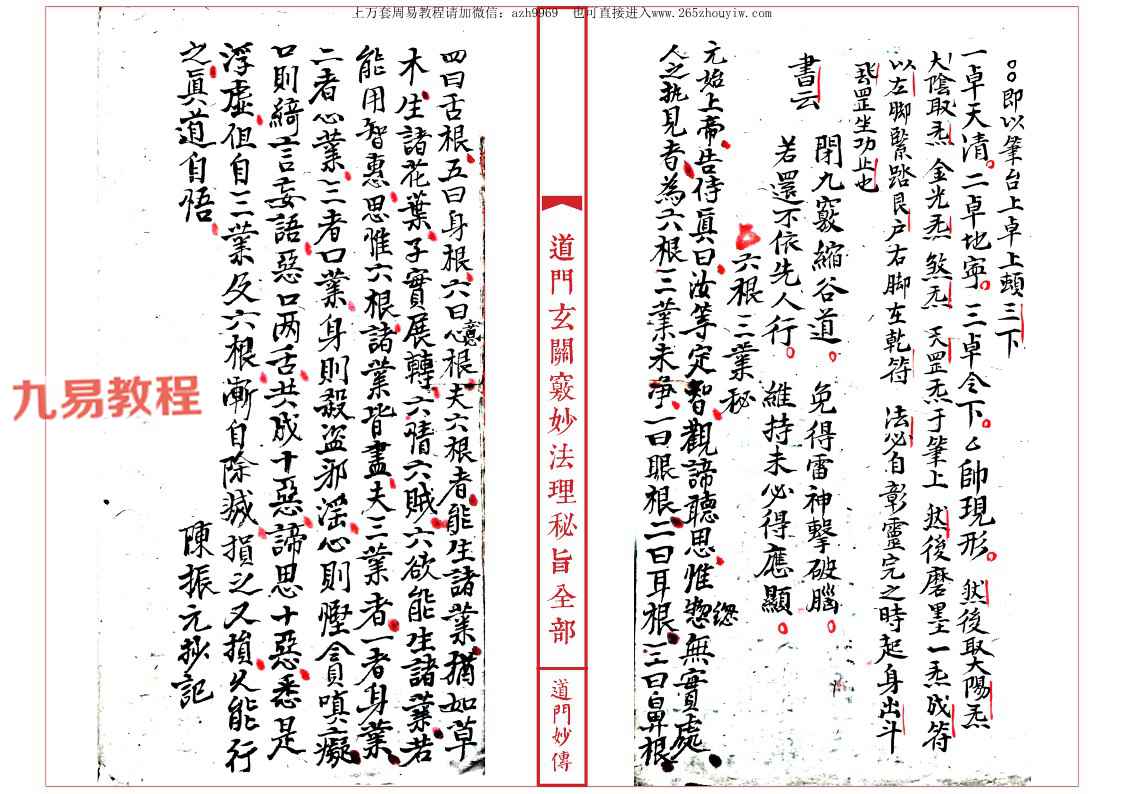 上万套周易教程请加微信：azh9969 也可直接进入www.265zhouyiw.com
即以筆台上卓上頭三下
一卓天清。二卓地寧。三卓令下。乙帥現形。然後取太陽炁
太陰取炁金光炁煞炁天罡炁于筆上然後磨墨一炁成符
以左脚緊踏艮户右脚在乾符法必自彰靈完之時起身出斗
罡坐功止也
書云
閉九竅縮谷道。免得雷神擊破腦。
若還不依先人行。維持未必得應顯。
六根三業秘
元始上帝告侍真曰汝等定智觀諦聽思惟惣總無實處
人之執見者為六根三業未净一曰眼根二曰耳根三曰鼻根
道門玄關竅妙法理秘旨全部
道門妙傳
四曰舌根五曰身根六曰心意根夫六根者能生諸業猶如草
木生諸花葉子實展轉六情六賊六欲能生諸業若
能用智惠思惟六根諸業皆盡夫三業者一者身業
二者心業三者口業身則殺盜邪淫心則慳貪嗔癡
口則綺言妄語惡口两舌共成十惡諦思十惡悉是
浮虛但自三業及六根漸自除滅損之又損久能行
之真道自悟
陳振元抄記
九易教程